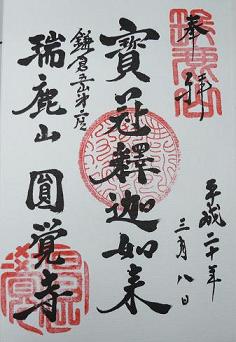 奉拝
平成二十年
三月八日
寶冠釋迦如来
鎌倉五山第二座
瑞鹿山
圓覚寺